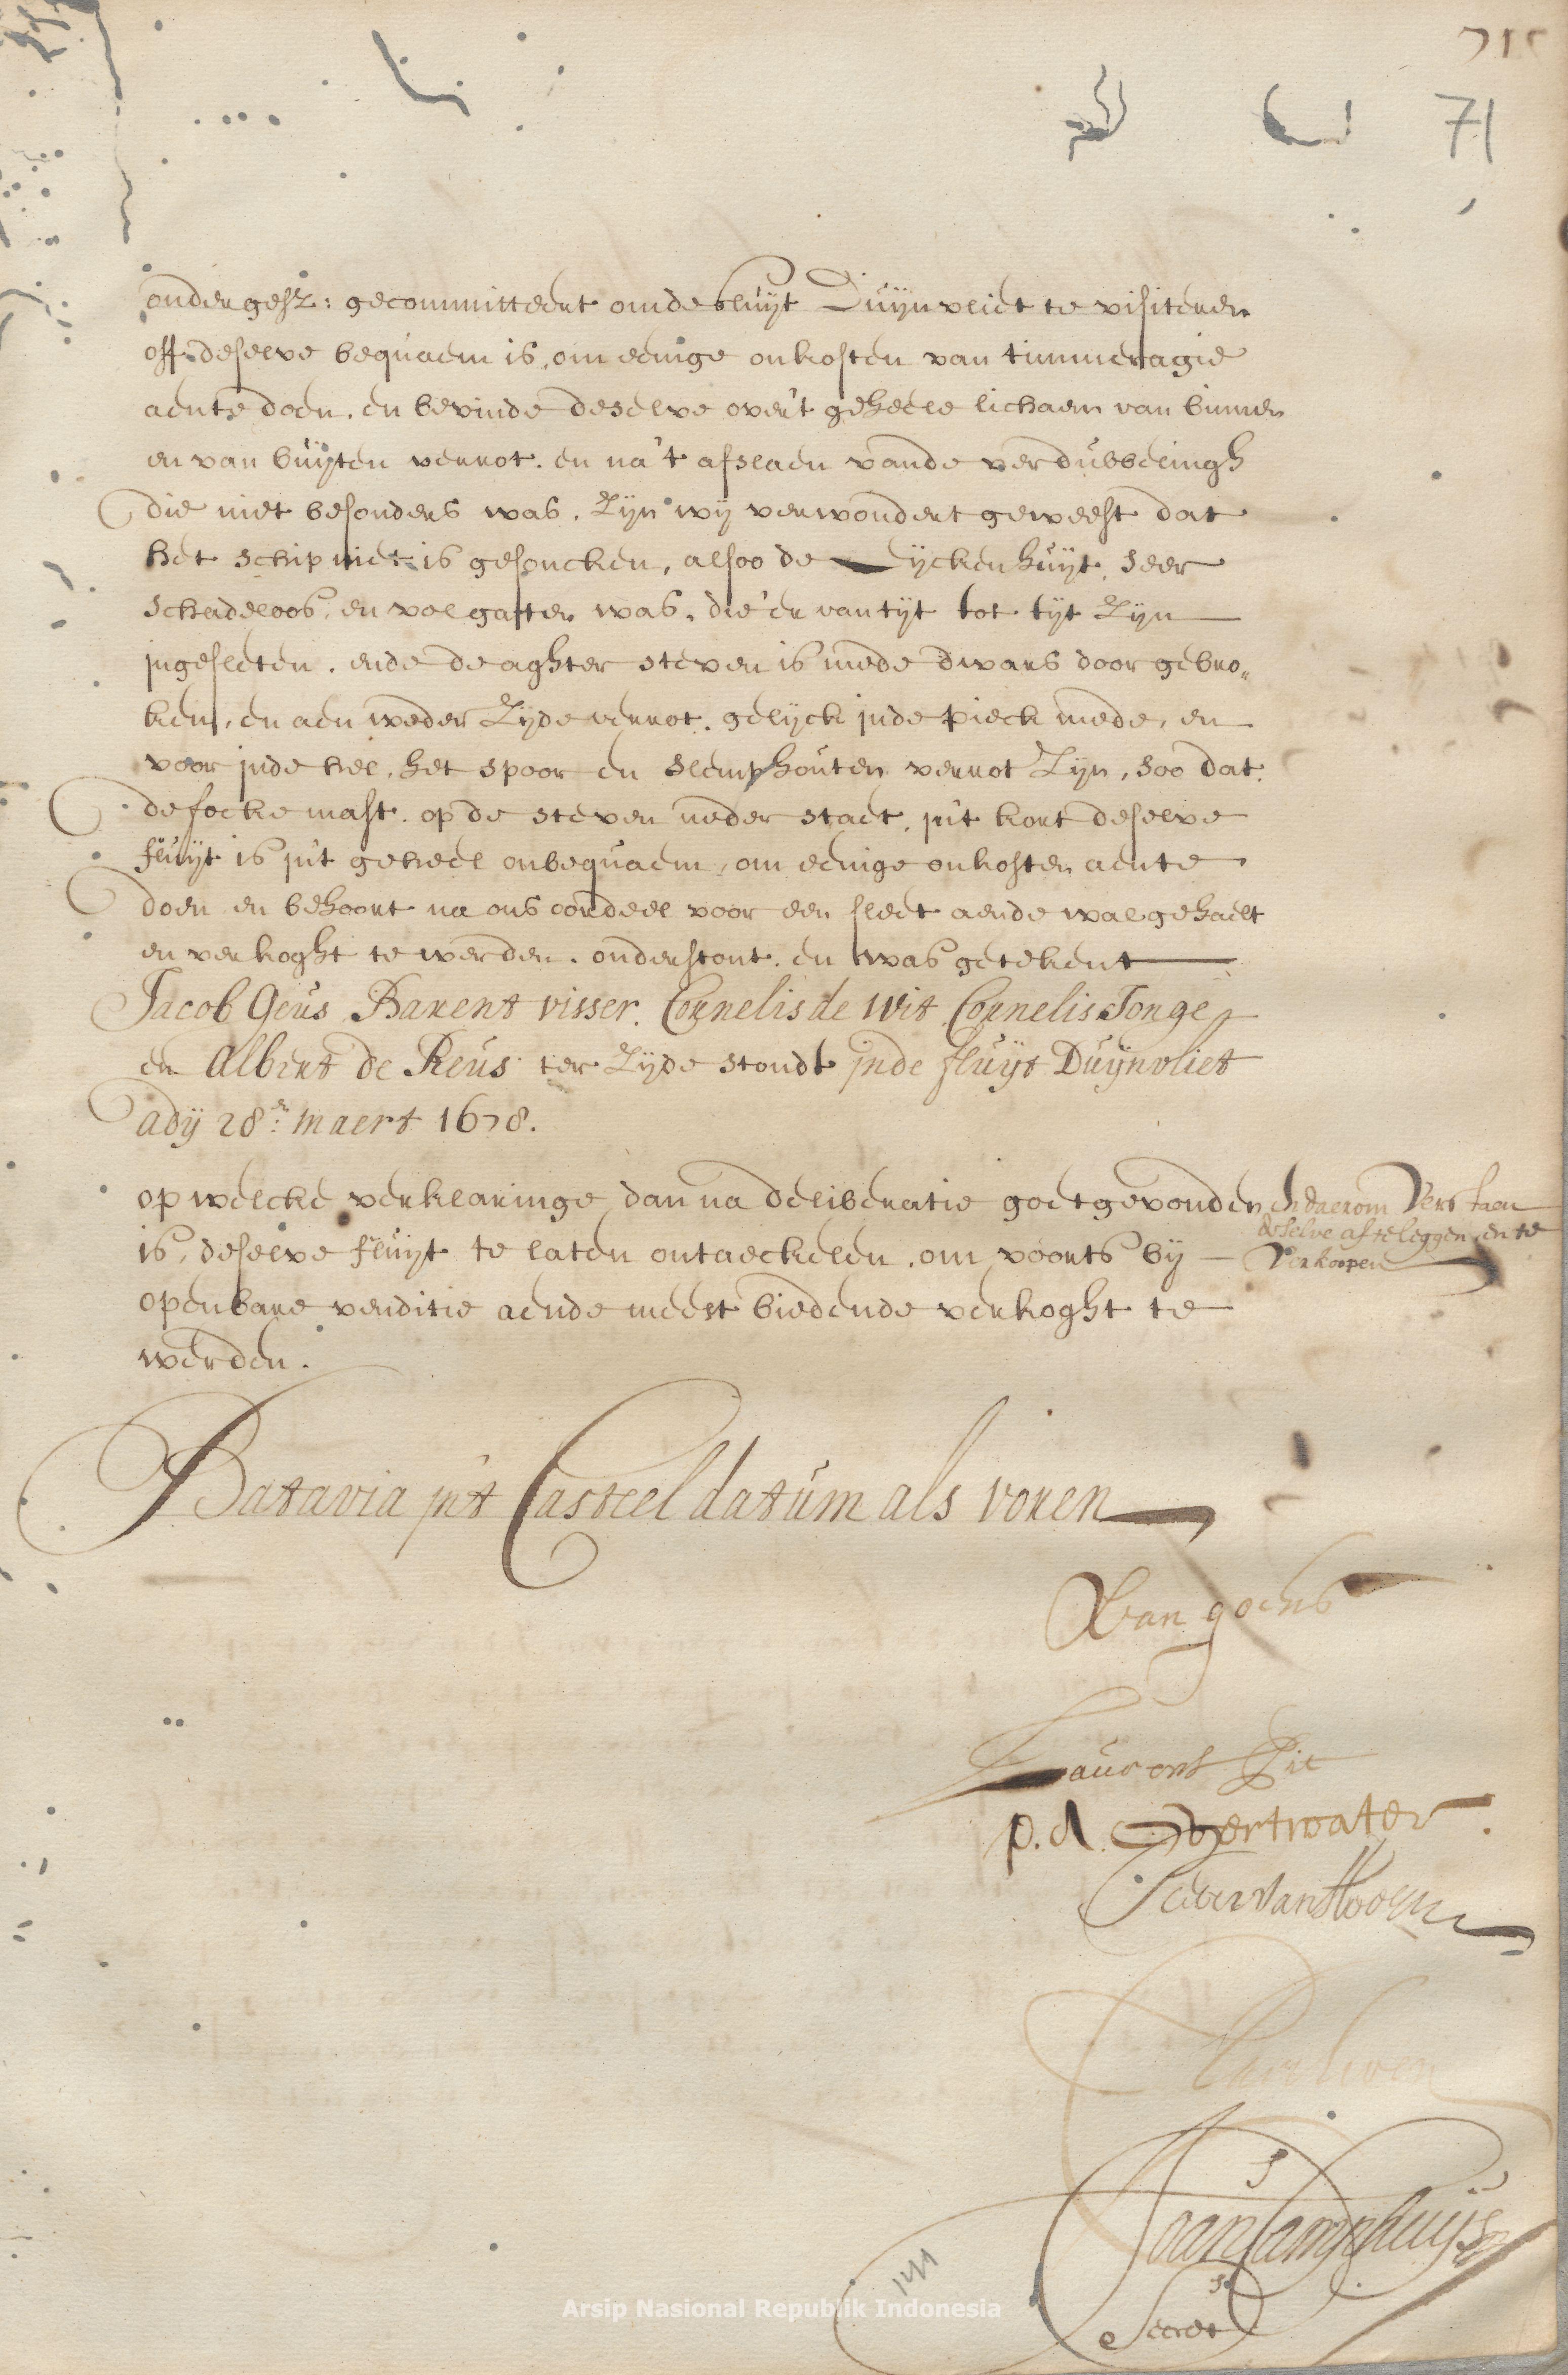 215
71
ondergesz: gecommitteert om de fluijt Duijnvliet te visiteren
off deselve bequaem is, om eenige onkosten van timmeragie
aente doen. en bevinde deselve over't geheele lichaem van binnen
en van buijten verrot. en na't afslaen vande verdubbelingh
die niet besonders was, zijn wij verwondert geweest dat
het schip niet is gesoncken, alsoo de eijckenhuijt, seer
schadeloos, en vol gaten was, die'er van tijt tot tijt zijn
ingesleten. ende de aghter steven is mede dwars door gebro„
ken, en aen weder zijde verrot. gelijck inde pieck mede, en
voor inde hel, het spoor en slemphouten verrot zijn, soo dat
de focke mast. op de steven neder staet, in't kort deselve
fluijt is in't geheel onbequaem, om eenige onkosten aente
doen en behoort na ons oordeel voor een sleet aende wal gehaelt
en verkoght te werden. onderstont. en was getekent
Jacob Geus Barent visser. Cornelis de Wit Cornelis Jonge
en Albert de Reus ter zijde stondt inde fluijt Duijnvliet
adij 28en: maert 1678.
op welcke verklaringe dan na deliberatie goetgevonden en daerom verstaen
deselve af te leggen en te
is, deselve fluijt te laten ontaeckelen, om voorts bij verkoopen
openbare venditie aende meest biedende verkoght te
werden.
Batavia in't Casteel datum als voren
Van goens
Laurens Pit
p. A. Overtwater
Pieter van Hoorn
Joan Camphuijs
Secret
141
Arsip Nasional Republik Indonesia